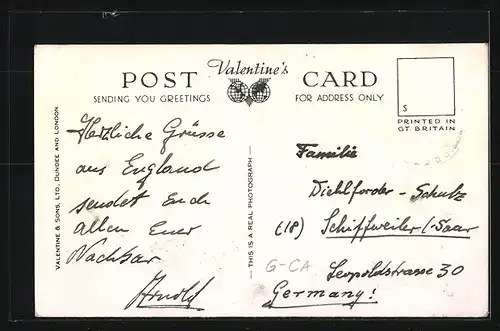 POST Valentine's CARD
SENDING YOU GREETINGS
FOR ADDRESS ONLY
S
PRINTED IN
GT. BRITAIN
VALENTINE & SONS, LTD., DUNDEE AND LONDON
THIS IS A REAL PHOTOGRAPH
Herzliche Grüsse
aus England
sendet Euch
allen Euer
Nachbar
Arnold
Familie
Diehlforder - Schulz
(18) Schiffweiler/-Saar
Leopoldstrasse 30
Germany!
G-CA